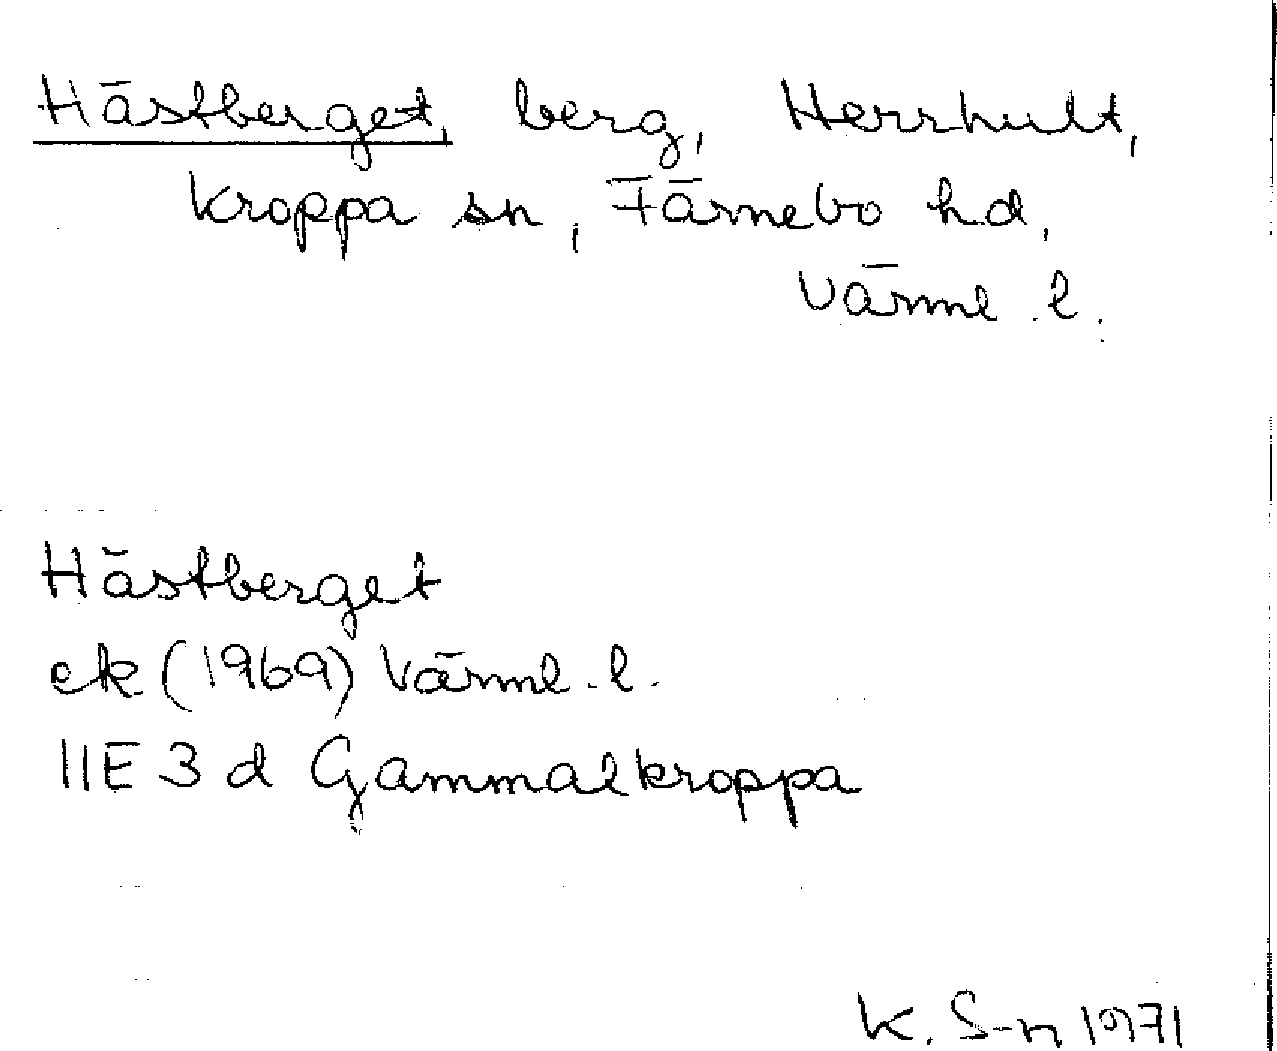 Hästberget, berg, Herrhult,
Kroppa sn, Färnebo hd,
Värml. l.
Hästberget
ek (1969) Värml. l.
11E 3 d Gammalkroppa
K. S-n 1971